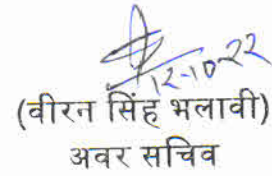 12-10-22
(वीरन सिंह भलावी)
अवर सचिव